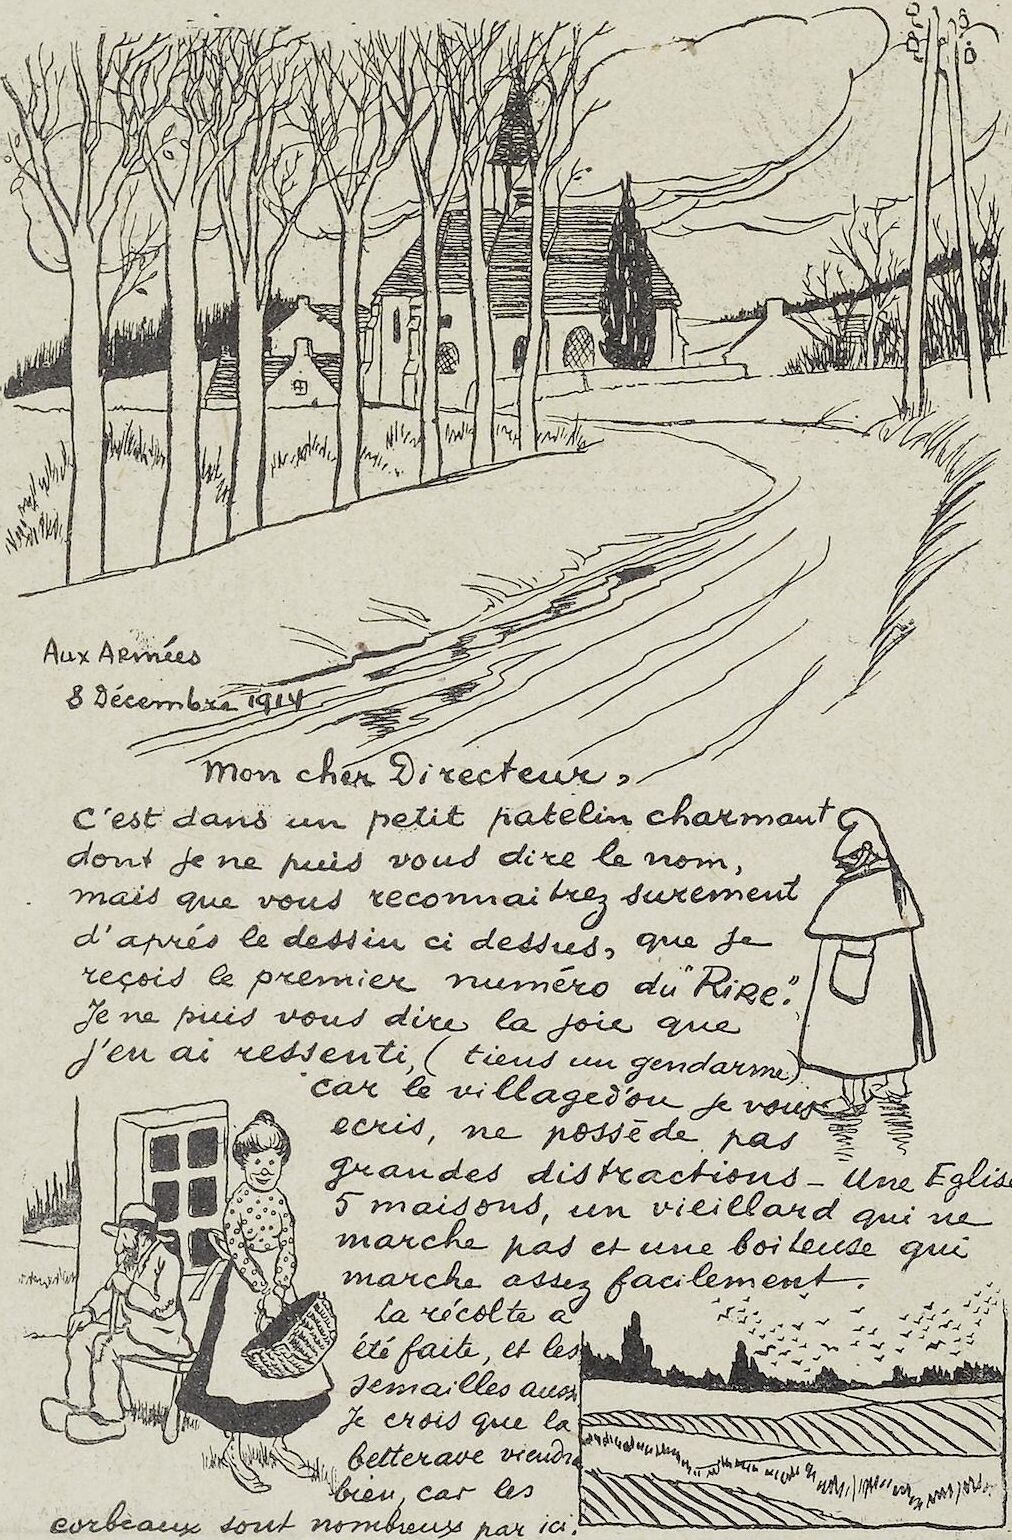 Aux Armées
8 Décembre 1914
Mon cher Directeur,
C'est dans un petit patelin charmant
dont je ne puis vous dire le nom,
mais que vous reconnaitrez surement
d'aprés le dessin ci dessus, que je
reçois le premier numéro du "Rire".
Je ne puis vous dire la joie que
j'en ai ressenti, ( tiens un gendarme)
car le village d'ou je vous
ecris, ne posséde pas
grandes distractions - Une Eglise
5 maisons, un vieillard qui ne
marche pas et une boiteuse qui
marche assez facilement.
La récolte a
été faite, et les
semailles aussi
Je crois que la
betterave viendra
bien, car les
corbeaux sont nombreux par ici.